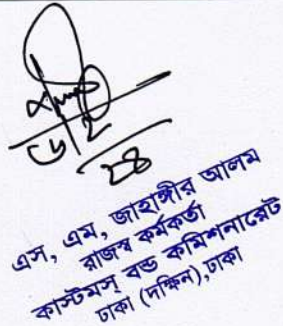 ৬/২/২৪
এস, এম, জাহাঙ্গীর আলম
রাজস্ব কর্মকর্তা
কাস্টমস্ বন্ড কমিশনারেট
ঢাকা (দক্ষিন),ঢাকা